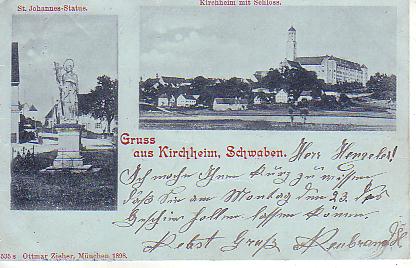 St. Johannes-Statue.
Kirchheim mit Schloss.
Gruss
aus Kirchheim, Schwaben.
Herr
Ich mache Ihnen kurz zu wissen
daß Sie am Montag den 23. das
Geschirr hollen lassen können.
Nebst Gruß
535 s Ottmar Zieher, München 1898.